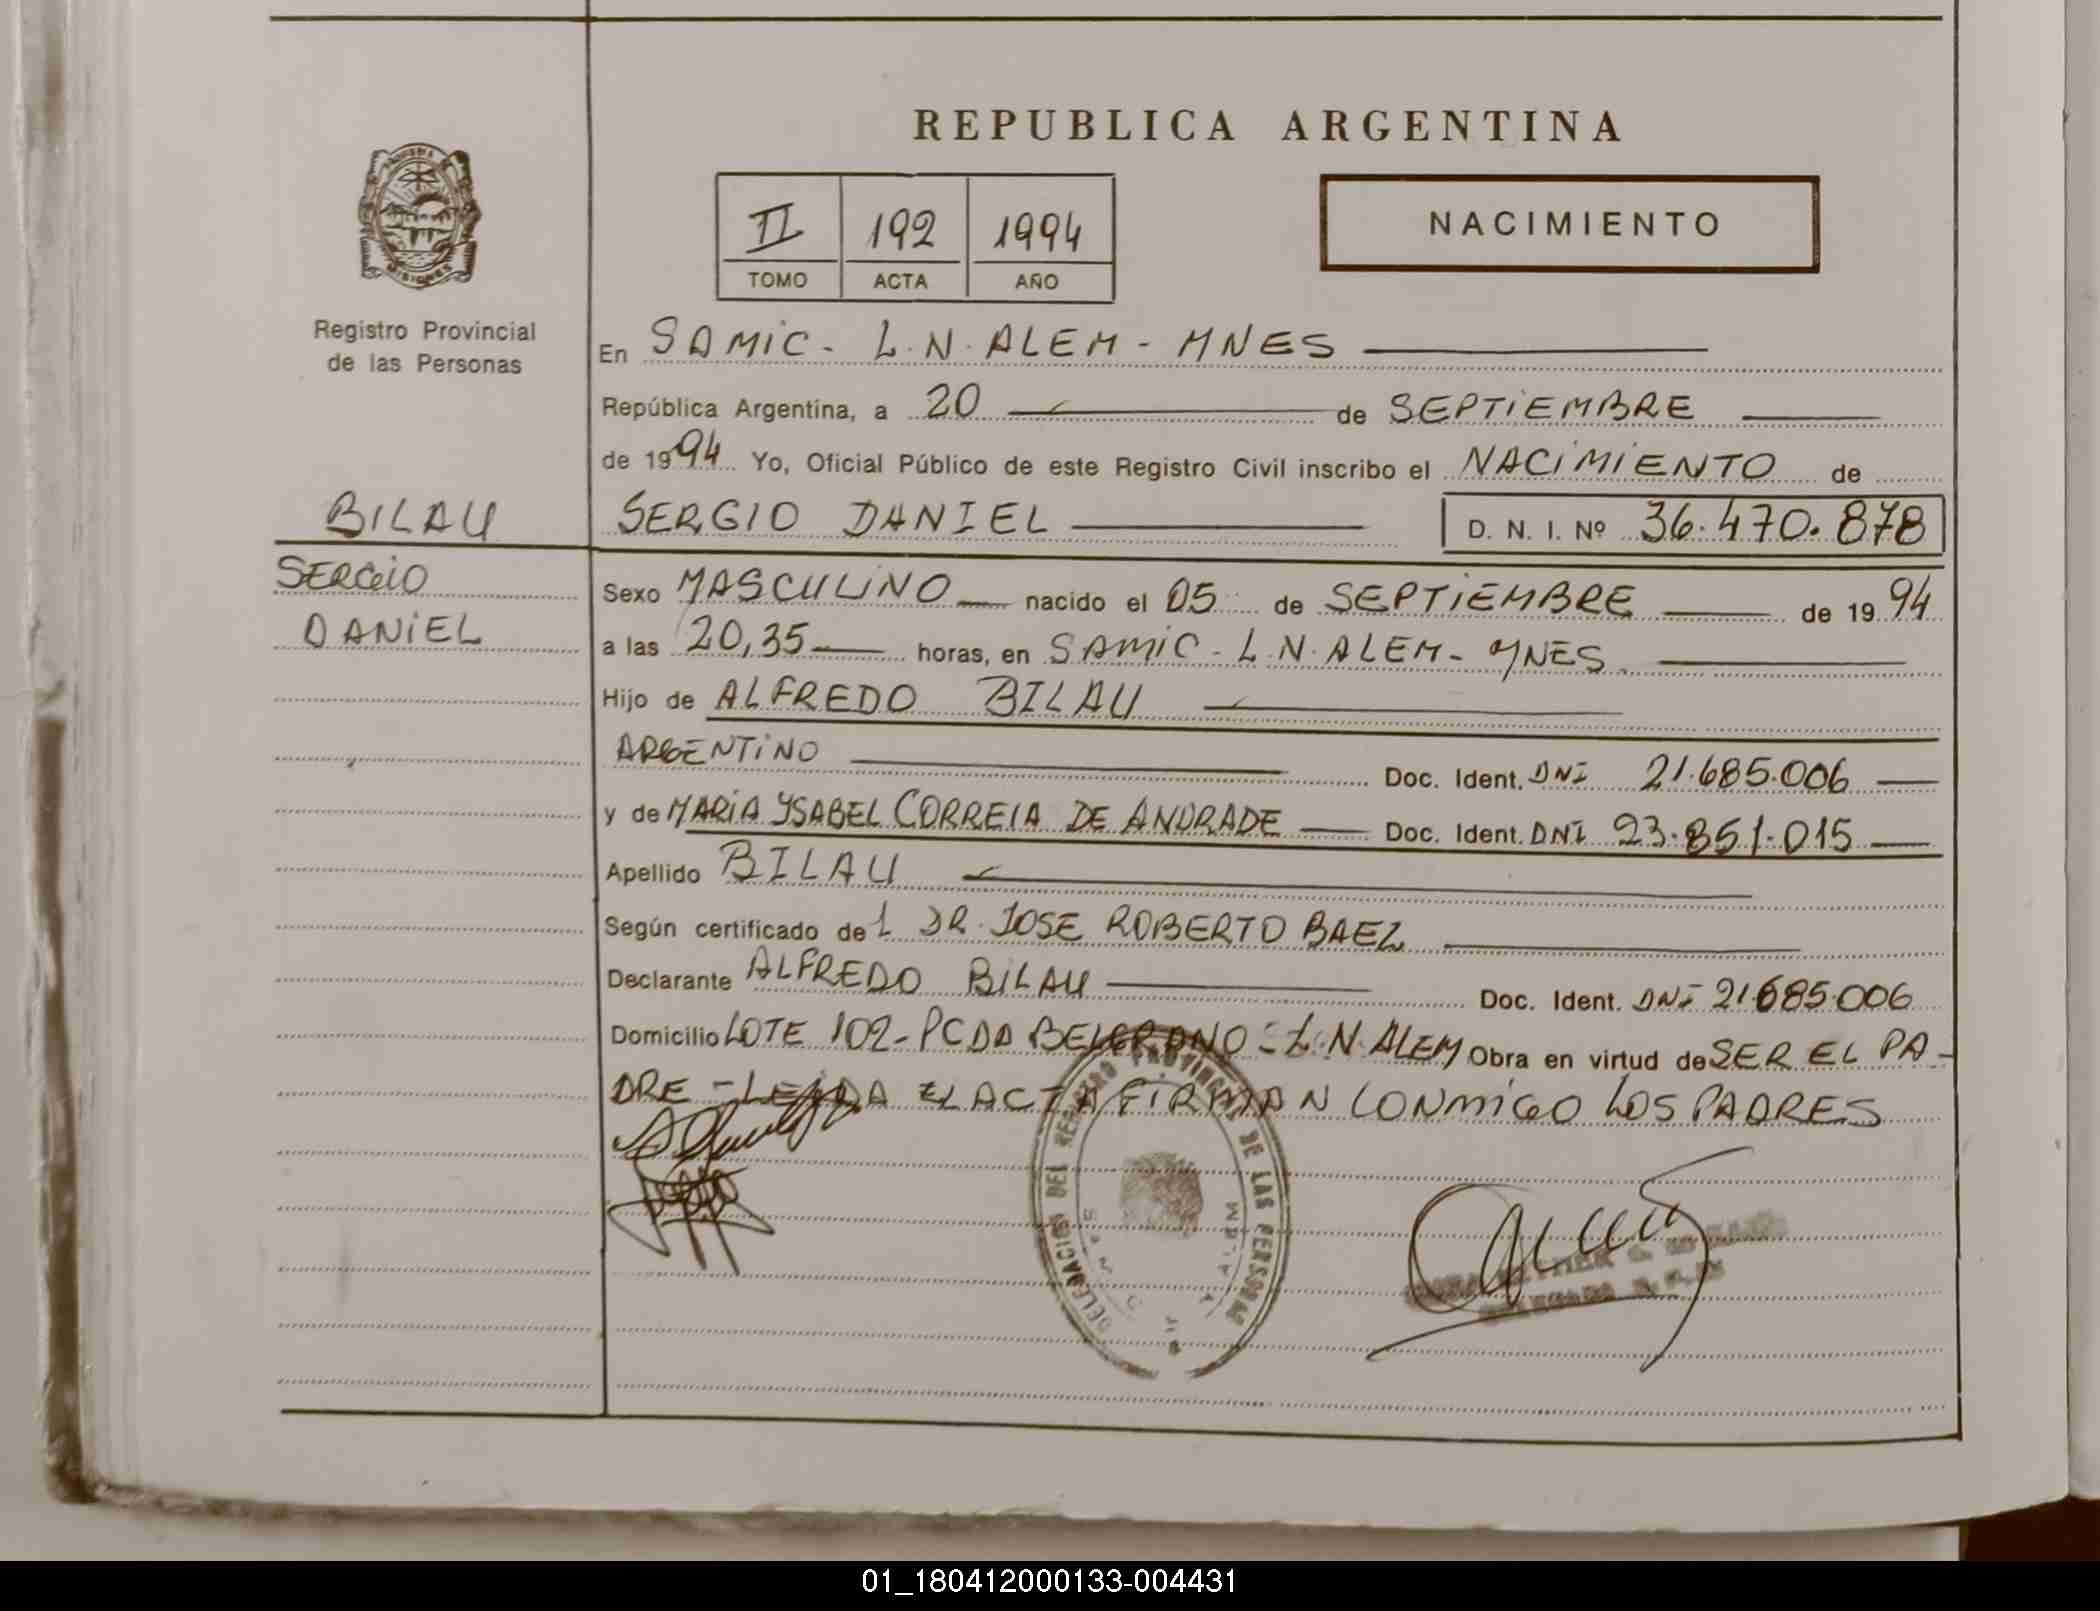 REPUBLICA ARGENTINA
II 192 1994
TOMO ACTA AÑO
NACIMIENTO
PROVINCIA DE
MISIONES
Registro Provincial
de las Personas
BILAU
SERGIO
DANIEL
En SAMIC - L.N. ALEM - MNES
República Argentina, a 20 de SEPTIEMBRE
de 1994 Yo, Oficial Público de este Registro Civil inscribo el NACIMIENTO de
SERGIO DANIEL D. N. I. Nº 36.470.878
Sexo MASCULINO nacido el 05 de SEPTIEMBRE de 1994
a las 20,35 horas, en SAMIC - L.N. ALEM - MNES
Hijo de ALFREDO BILAU
ARGENTINO Doc. Ident. DNI 21.685.006
y de MARIA YSABEL CORREIA DE ANDRADE Doc. Ident. DNI 23.851.015
Apellido BILAU
Según certificado del DR. JOSE ROBERTO BAEZ
Declarante ALFREDO BILAU Doc. Ident. DNI 21.685.006
Domicilio LOTE 102 - PCDA BELGRANO - L.N. ALEM Obra en virtud de SER EL PA-
DRE - LEIDA EL ACTA FIRMAN CONMIGO LOS PADRES
DELEGACION DEL REGISTRO PROVINCIAL DE LAS PERSONAS
01_180412000133-004431